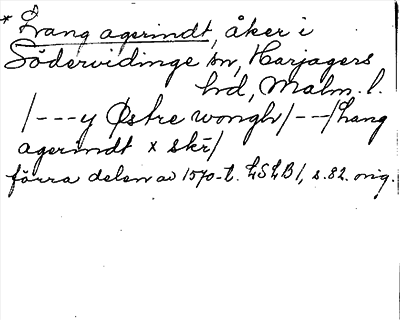 * Lang agerindt, åker i
Södervidinge sn, Harjagers
hd, Malm. l.
/---y Østre wongh/---/Lang
agerindt x skr/
förra delen av 1570-t. LSLB/, s. 82. orig.